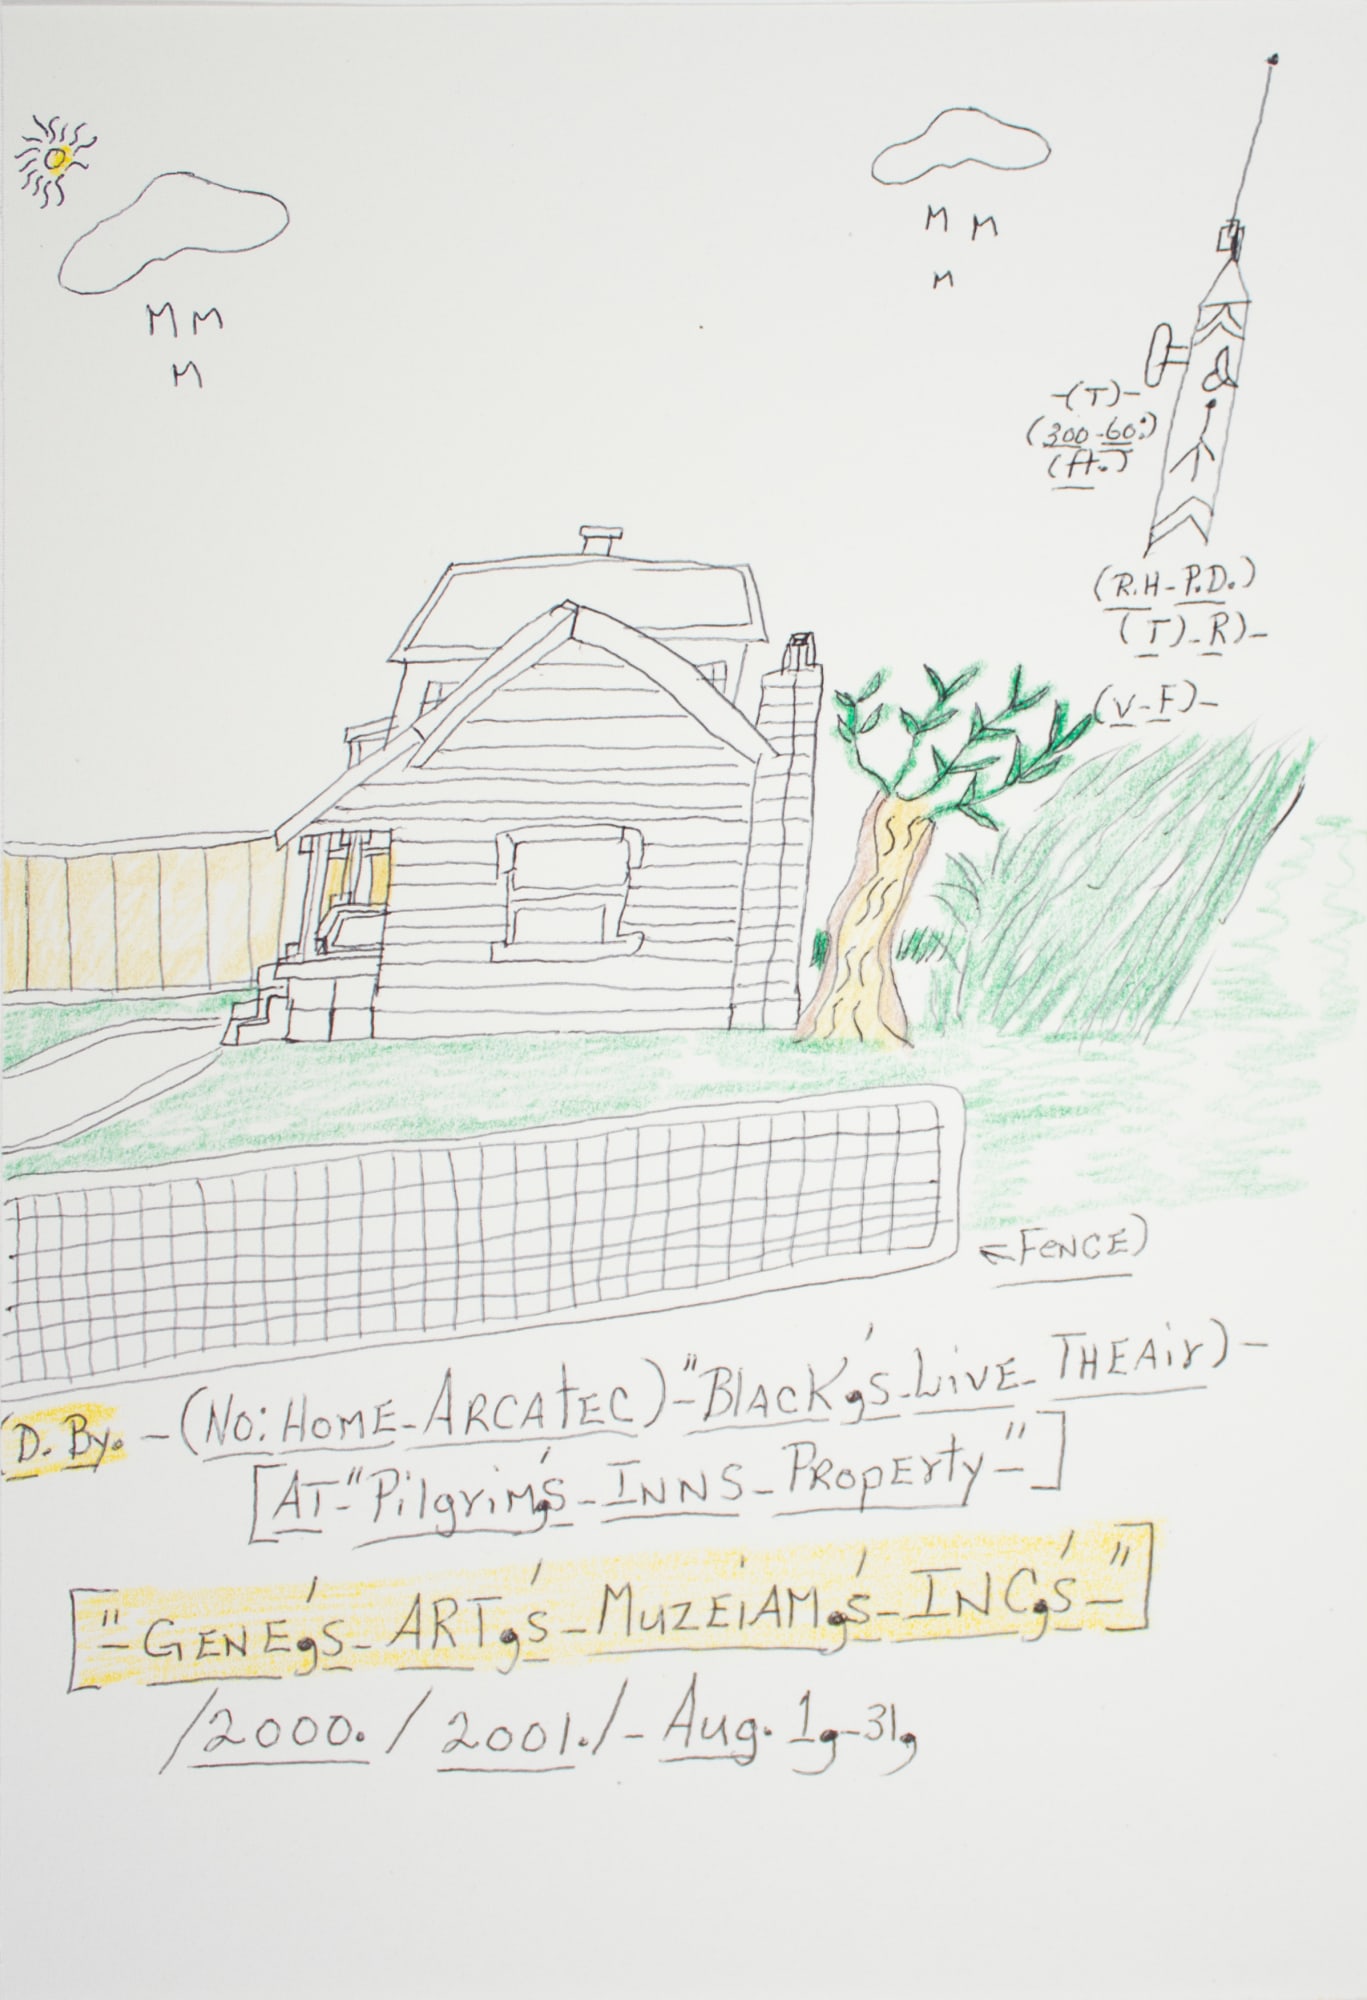 M M
M
M M
M
-(T)-
(300-60:)
(ft.)
(R.H-P.D.)
(T)-R)-
(V-F)-
←FENCE)
(D. By. -(No: HOME-ARCATEC)-"BLACK,'S-LiVE-THEAir)-
[AT-"Pilgrim,'s-INNS-PROPErty-"]
["-GENE,'s-ART,'s-MUZEiAM,'s-INC,'s-"]
/2000./ 2001./- Aug. 1,-31,